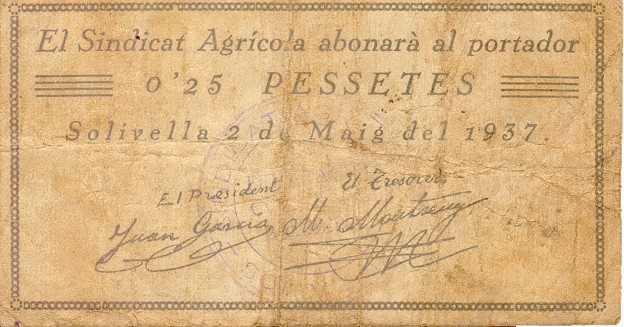 El Sindicat Agrícola abonarà al portador
0'25 PESSETES
Solivella 2 de Maig del 1937.
El President
El Tresorer,
Juan García
M. Montseny